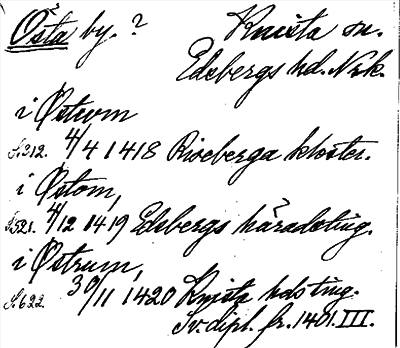 Östa by. ? Knista sn.
Edsbergs hd. Nrk.
i Østvom
S. 312. 4/4 1418 Riseberga kloster.
i Østom,
S. 521. 4/12 1419 Edsbergs häradsting.
i Østrum,
S. 622. 30/11 1420 Knista hds ting.
Sv. dipl. fr. 1401. III.